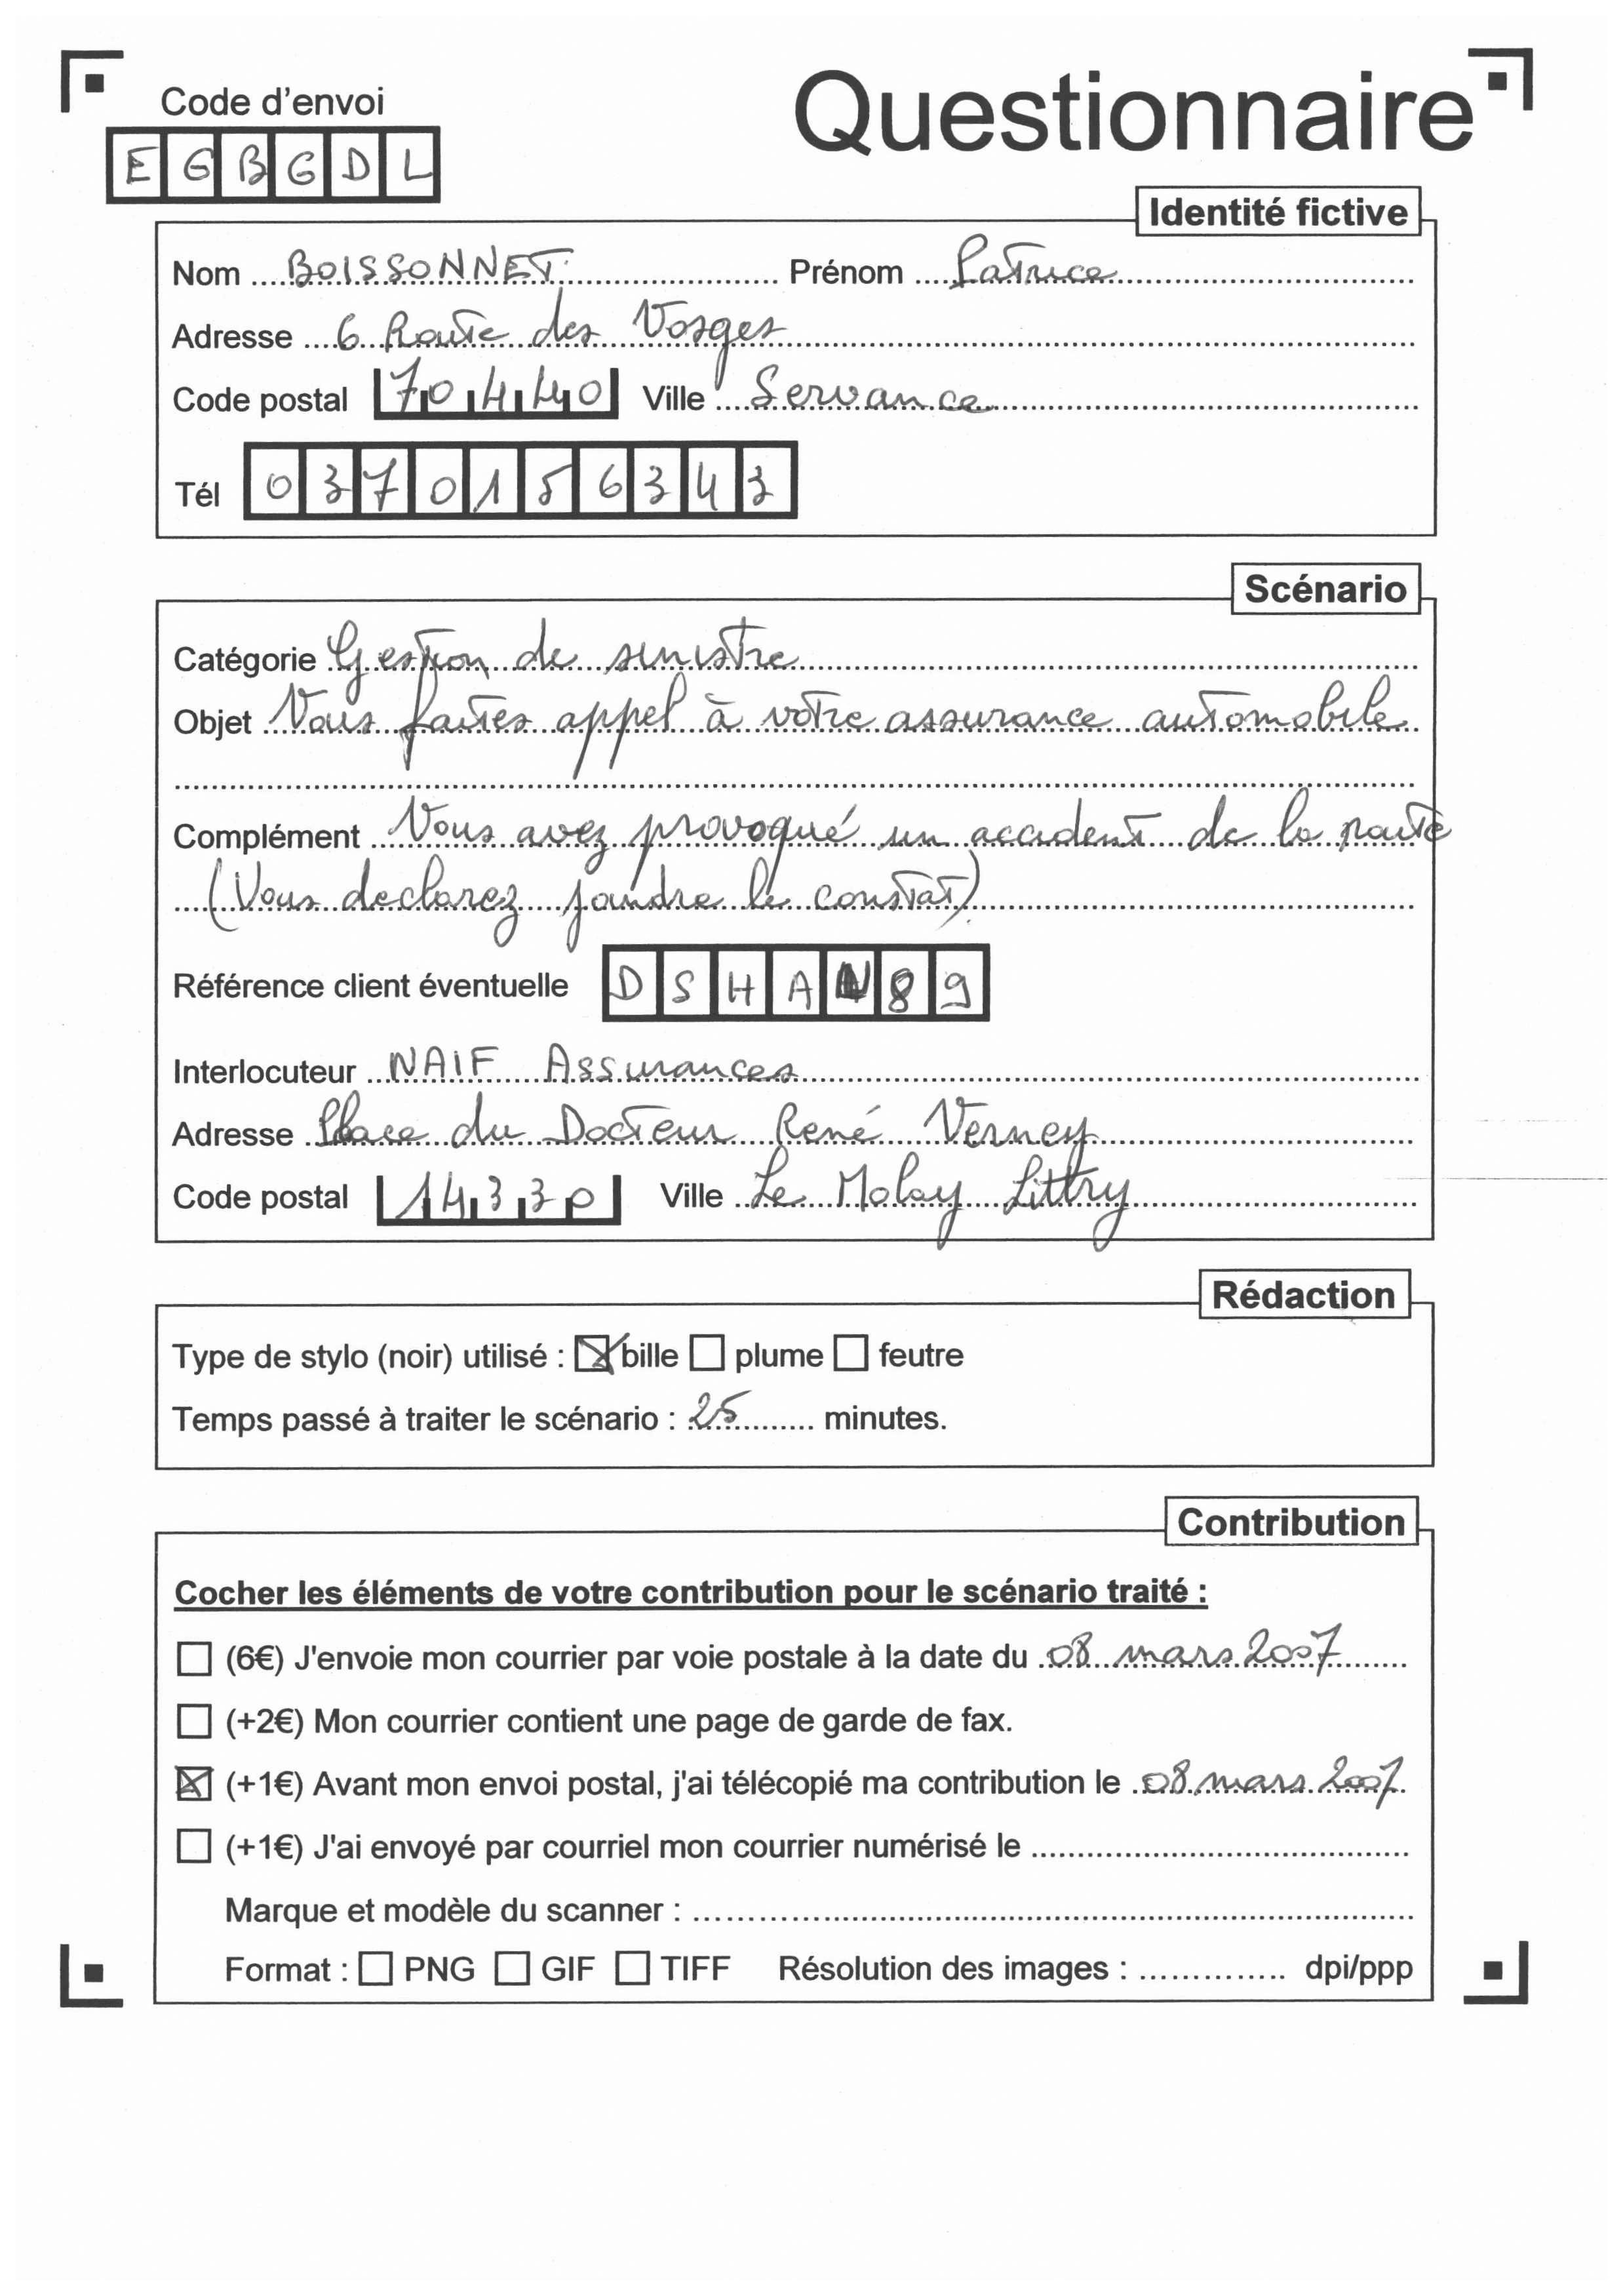 Code d'envoi
Questionnaire
E G B G D L
Identité fictive
Nom BOISSONNET Prénom Patrice
Adresse 6 Route des Vosges
Code postal 70440 Ville Servance
Tél 0370156343
Scénario
Catégorie Gestion de sinistre
Objet Vous faites appel à votre assurance automobile
Complément Vous avez provoqué un accident de la route
(Vous declarez joindre le constat)
Référence client éventuelle D S H A N 8 9
Interlocuteur NAIF Assurances
Adresse Place du Docteur René Verney
Code postal 14330 Ville Le Molay Littry
Rédaction
Type de stylo (noir) utilisé : ☒ bille ☐ plume ☐ feutre
Temps passé à traiter le scénario : 25 minutes.
Contribution
Cocher les éléments de votre contribution pour le scénario traité :
☐ (6€) J'envoie mon courrier par voie postale à la date du 08 mars 2007
☐ (+2€) Mon courrier contient une page de garde de fax.
☒ (+1€) Avant mon envoi postal, j'ai télécopié ma contribution le 08 mars 2007.
☐ (+1€) J'ai envoyé par courriel mon courrier numérisé le
Marque et modèle du scanner :
Format : ☐ PNG ☐ GIF ☐ TIFF Résolution des images : dpi/ppp